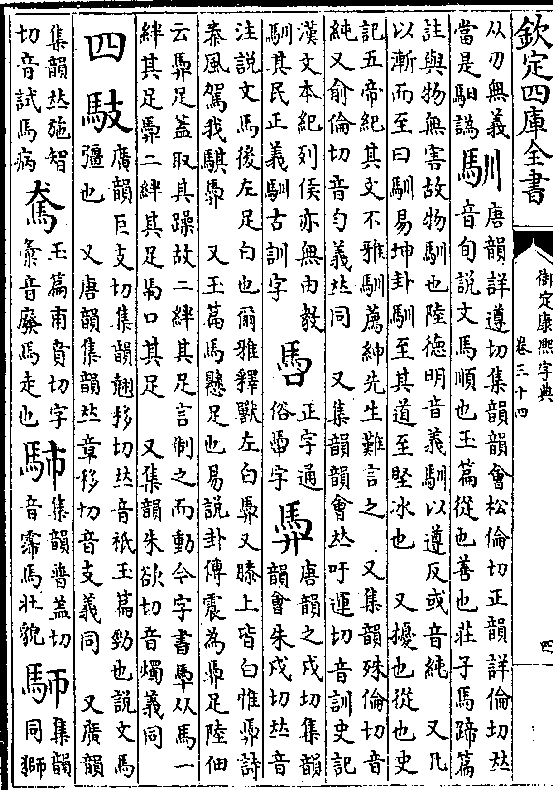 欽定四庫全書
御定康熙字典
卷三十四
四
从刃無義
當是馹譌
馴
唐韻詳遵切集韻韻會松倫切正韻詳倫切𠀤
音旬說文馬順也玉篇從也善也莊子馬蹄篇
註與物無害故物馴也陸德明音義馴以遵反或音純　又凡
以漸而至曰馴易坤卦馴至其道至堅冰也　又擾也從也史
記五帝紀其文不雅馴薦紳先生難言之　又集韻殊倫切音
純又俞倫切音勻義𠀤同　又集韻韻會𠀤吁運切音訓史記
漢文本紀列侯亦無由教
馴其民正義馴古訓字
正字通
俗馽字
馵
唐韻之戍切集韻
韻會朱戍切𠀤音
注說文馬後左足白也爾雅釋獸左白馵又膝上皆白惟馵詩
秦風駕我騏馵　又玉篇馬懸足也易說卦傳震為馵足陸佃
云馵足蓋取其躁故二絆其足言制之而動今字書馬从馬一
絆其足馵二絆其足馽口其足　又集韻朱欲切音燭義同
四
馶
廣韻巨支切集韻翹移切𠀤音祇玉篇勁也說文馬
彊也　又唐韻集韻𠀤章移切音支義同　又廣韻
集韻𠀤施智
切音試馬病
玉篇甫賁切字
彙音廢馬走也
集韻普蓋切
音霈馬壯貌
集韻
同獅